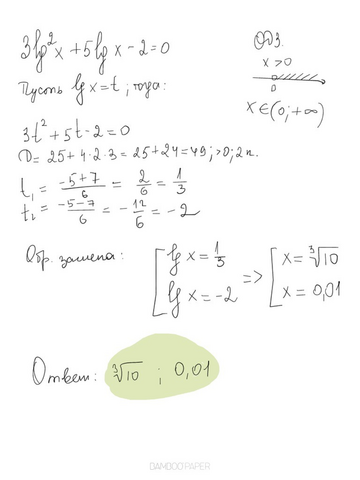 3lg²x + 5lg x - 2 = 0
ОДЗ.
x > 0
0
x ∈ (0; +∞)
Пусть lg x = t ; тогда:
3t² + 5t - 2 = 0
D = 25 + 4·2·3 = 25 + 24 = 49; > 0; 2 к.
t₁ = (-5+7)/6 = 2/6 = 1/3
t₂ = (-5-7)/6 = -12/6 = -2
Обр. замена: [ lg x = 1/3 => [ x = ∛10
lg x = -2 x = 0,01
Ответ: ∛10 ; 0,01
BAMBOO PAPER